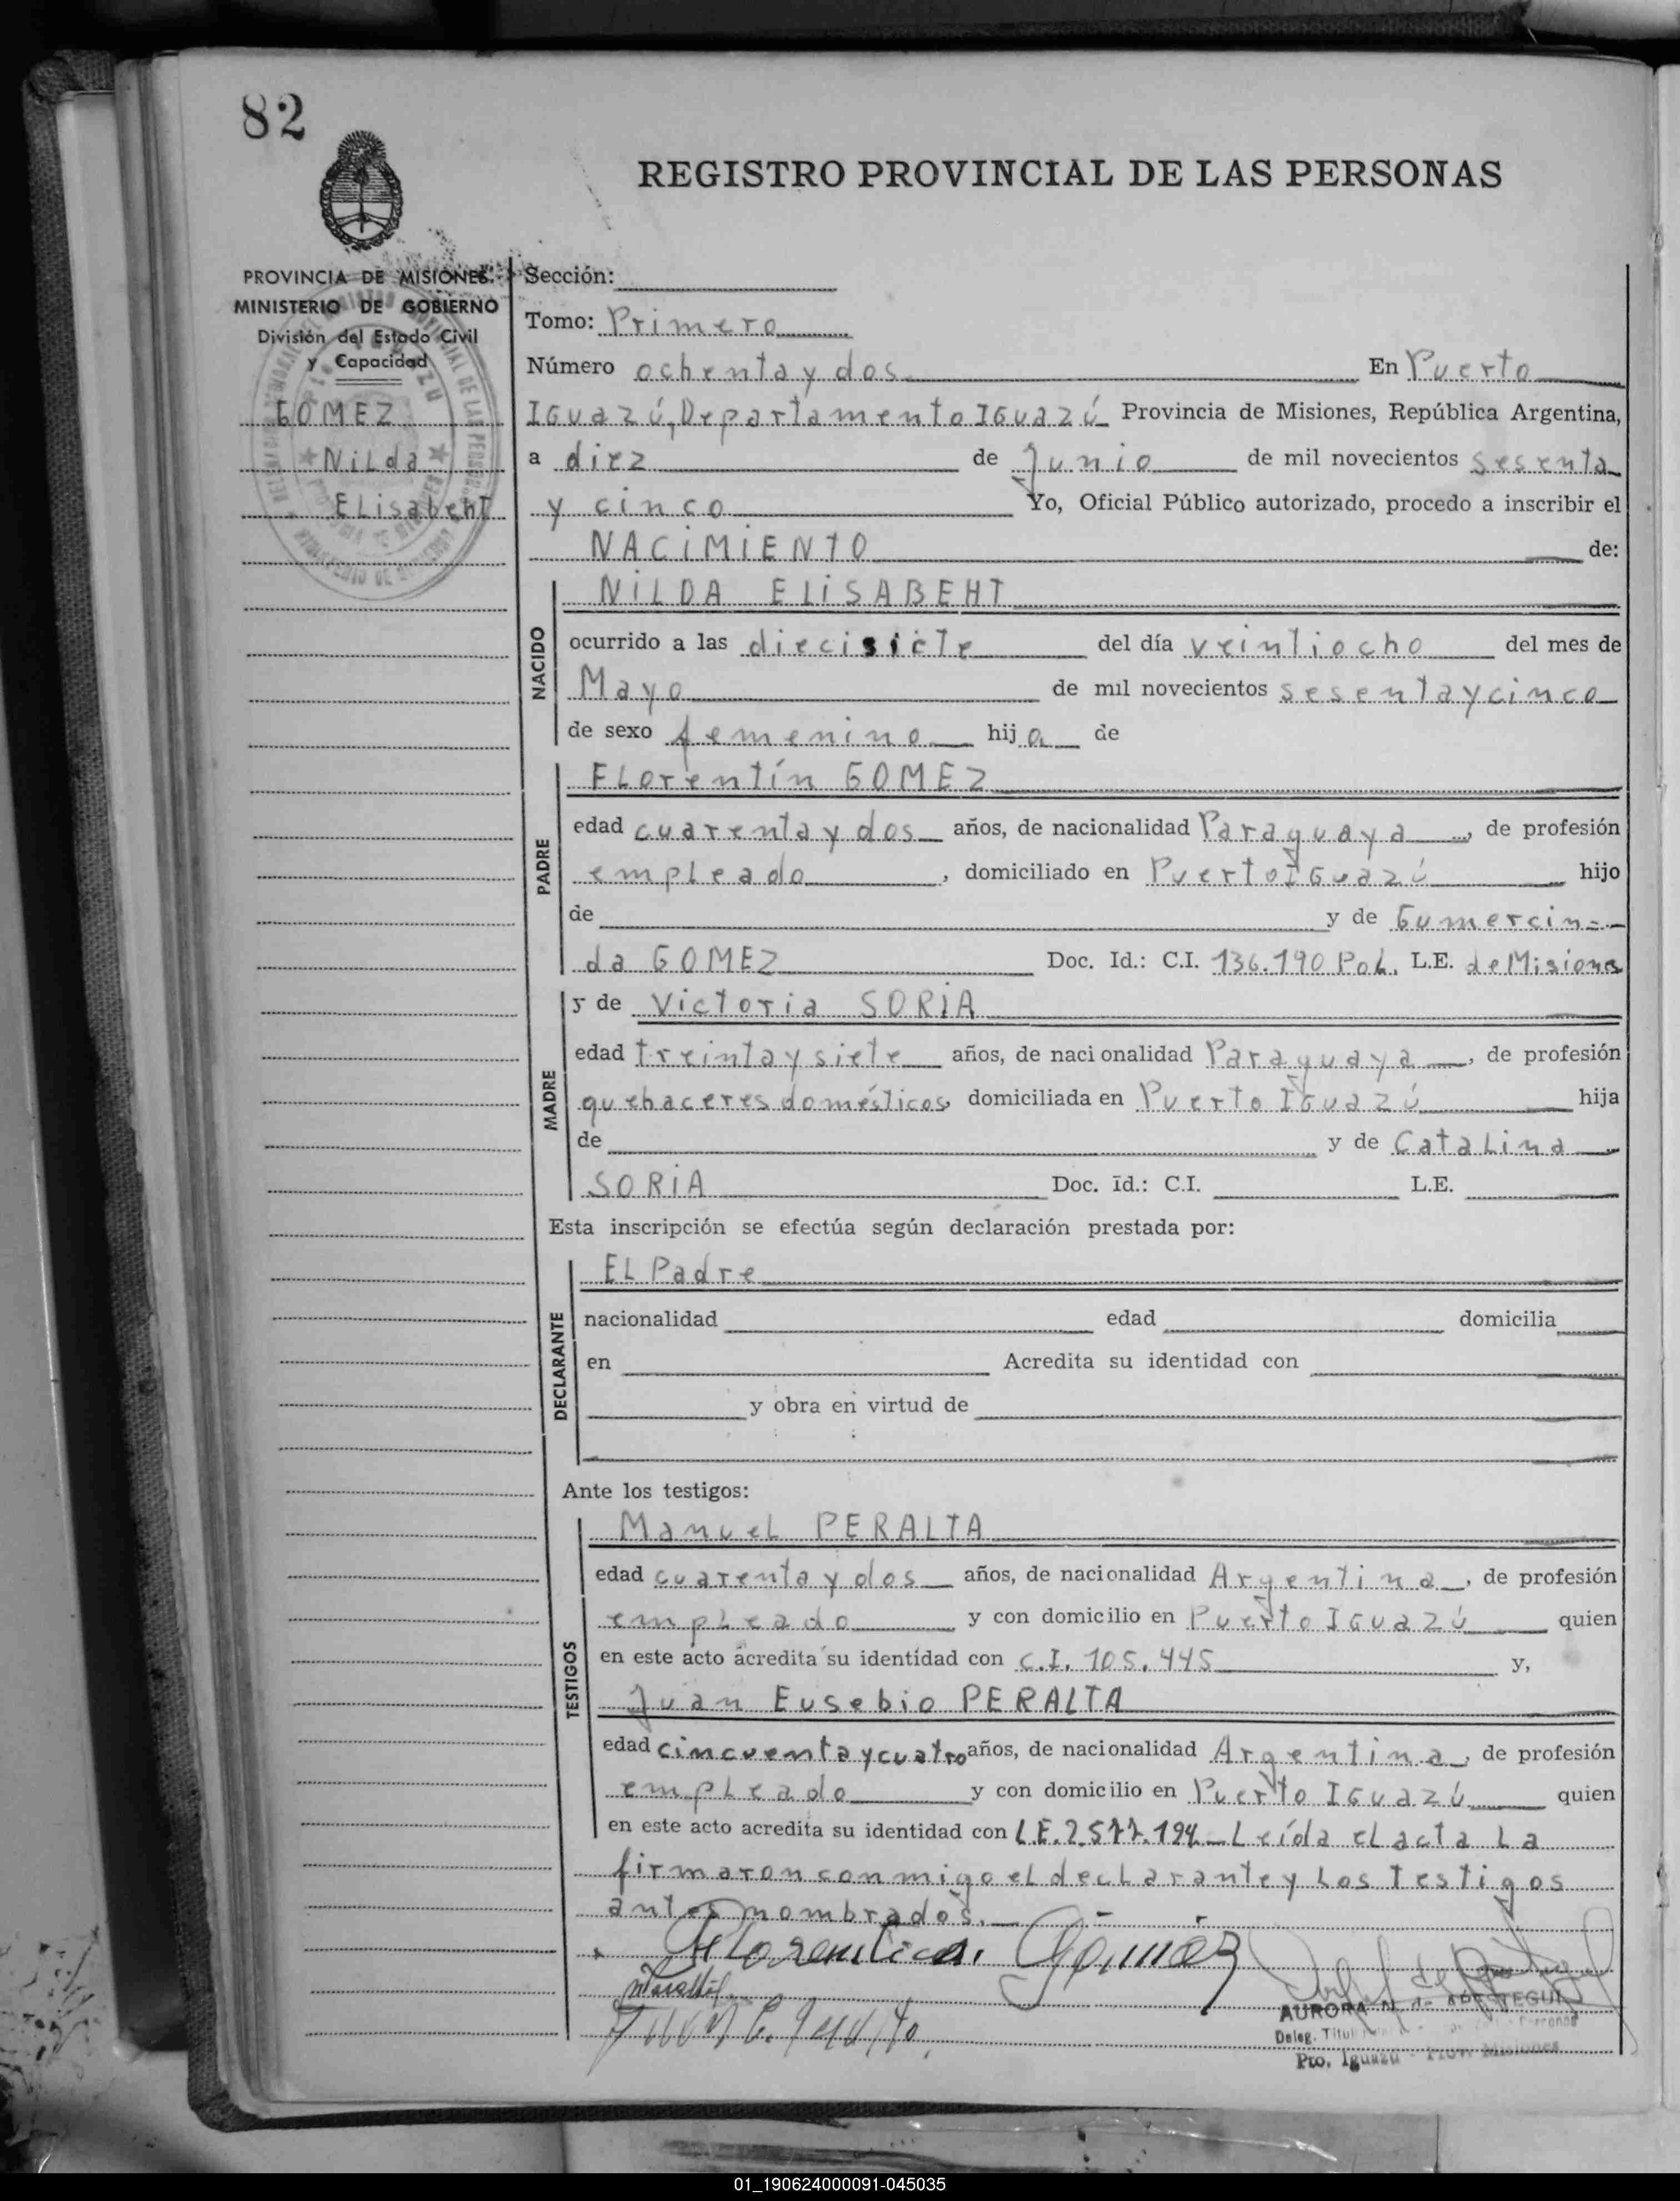 82
REGISTRO PROVINCIAL DE LAS PERSONAS
PROVINCIA DE MISIONES
MINISTERIO DE GOBIERNO
División del Estado Civil
y Capacidad
GOMEZ
Nilda
Elisabeht
Sección:
Tomo: Primero
Número ochenta y dos En Puerto
Iguazú, Departamento Iguazú Provincia de Misiones, República Argentina,
a diez de Junio de mil novecientos sesenta
y cinco Yo, Oficial Público autorizado, procedo a inscribir el
NACIMIENTO de:
NACIDO
NILDA ELISABEHT
ocurrido a las diecisiete del día veintiocho del mes de
Mayo de mil novecientos sesenta y cinco
de sexo femenino hija de
PADRE
Florentín GOMEZ
edad cuarenta y dos años, de nacionalidad Paraguaya, de profesión
empleado, domiciliado en Puerto Iguazú hijo
de y de Gumercin=
da GOMEZ Doc. Id.: C.I. 136.190 Pol. L.E. de Misiones
MADRE
y de Victoria SORIA
edad treinta y siete años, de nacionalidad Paraguaya, de profesión
quehaceres domésticos, domiciliada en Puerto Iguazú hija
de y de Catalina
SORIA Doc. Id.: C.I. L.E.
Esta inscripción se efectúa según declaración prestada por:
DECLARANTE
El Padre
nacionalidad edad domicilia
en Acredita su identidad con
y obra en virtud de
Ante los testigos:
TESTIGOS
Manuel PERALTA
edad cuarenta y dos años, de nacionalidad Argentina, de profesión
empleado y con domicilio en Puerto Iguazú quien
en este acto acredita su identidad con C.I. 105.445 y,
Juan Eusebio PERALTA
edad cincuenta y cuatro años, de nacionalidad Argentina, de profesión
empleado y con domicilio en Puerto Iguazú quien
en este acto acredita su identidad con L.E. 2.577.194 Leída el acta la
firmaron conmigo el declarante y los testigos
antes nombrados.
Florentin Gómez
AURORA
Deleg. Titul
Pto. Iguazú - Prov. Misiones
01_190624000091-045035